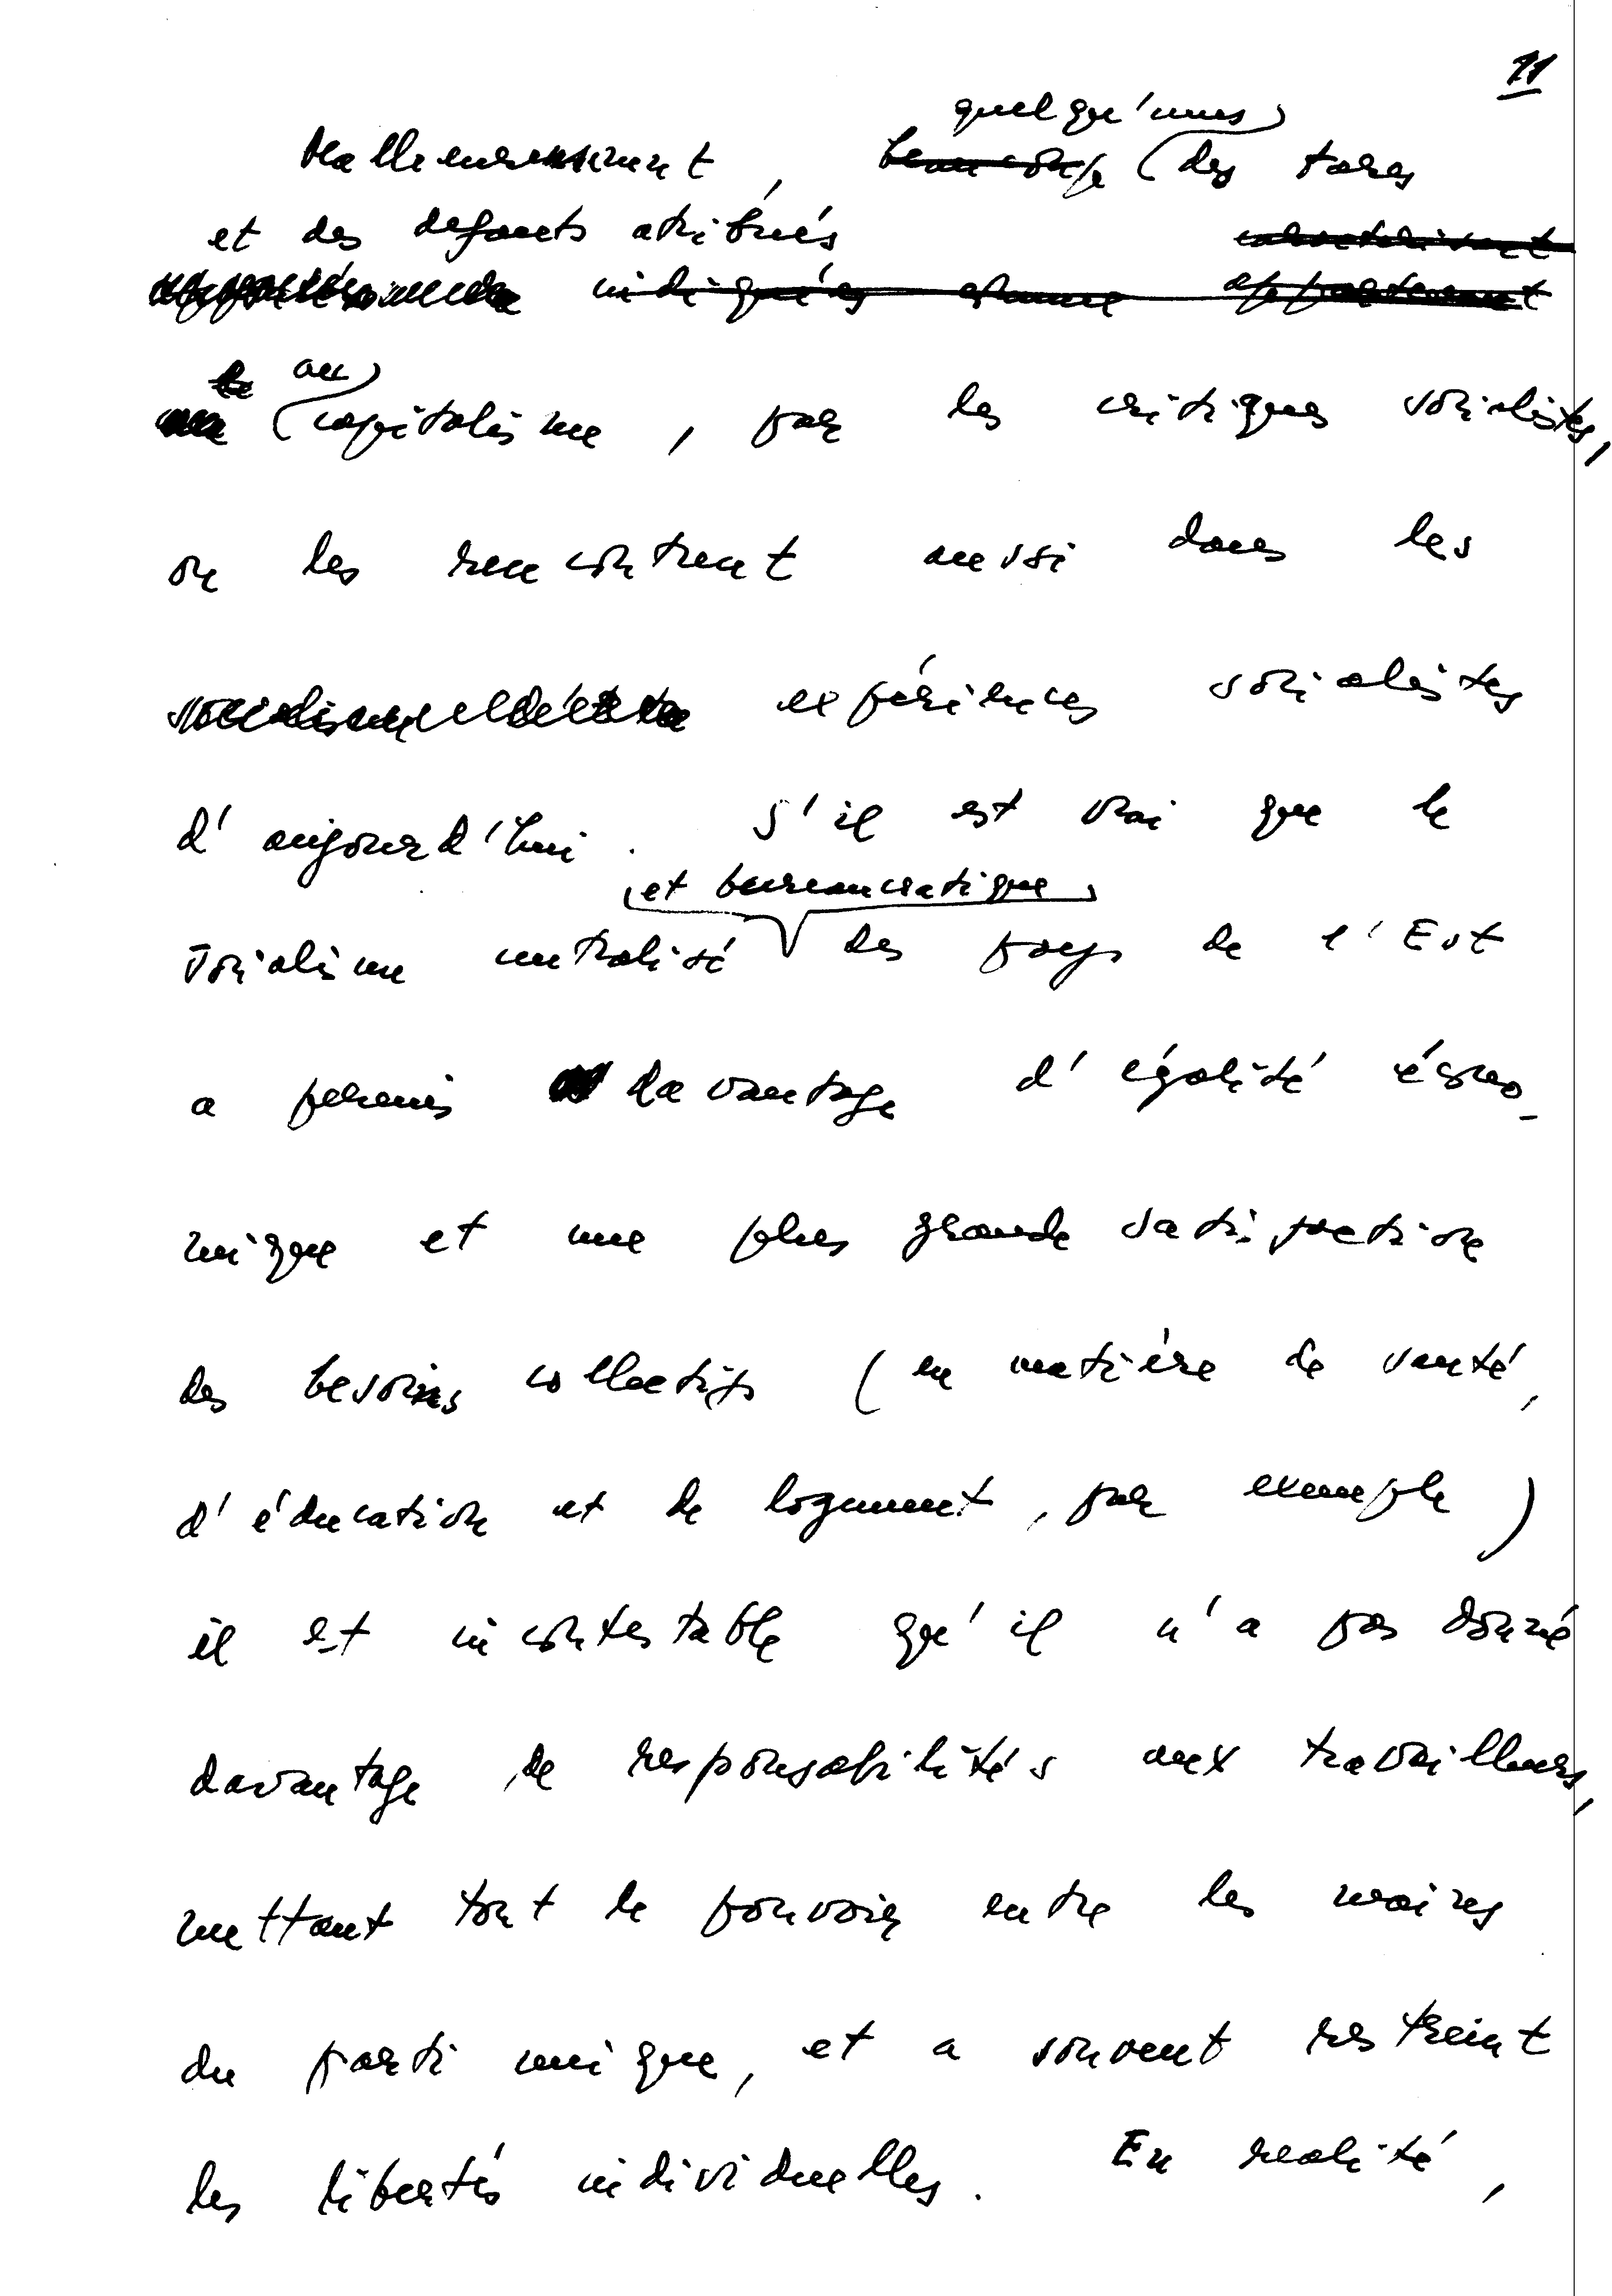 11
quelqu'unes
Malheureusement, beaucoup des tares
et des defauts atribués caractérisant
indiquées comme appartenant
le au
capitalisme, par les critiques socialistes,
on les rencontrent aussi dans les
expériences socialistes
d'aujourd'hui. S'il est vrai que le
et bureaucratique
socialisme centralisé des pays de l'Est
a permis davantage d'égalité écono-
mique et une plus grande satisfaction
des besoins collectifs (en matière de santé,
d'éducation et de logement, par exemple)
il est incontestable qu'il n'a pas donné
davantage de responsabilités aux travailleurs,
mettant tout le pouvoir entre les mains
du parti unique, et a souvent restreint
les libertés individuelles. En realité,